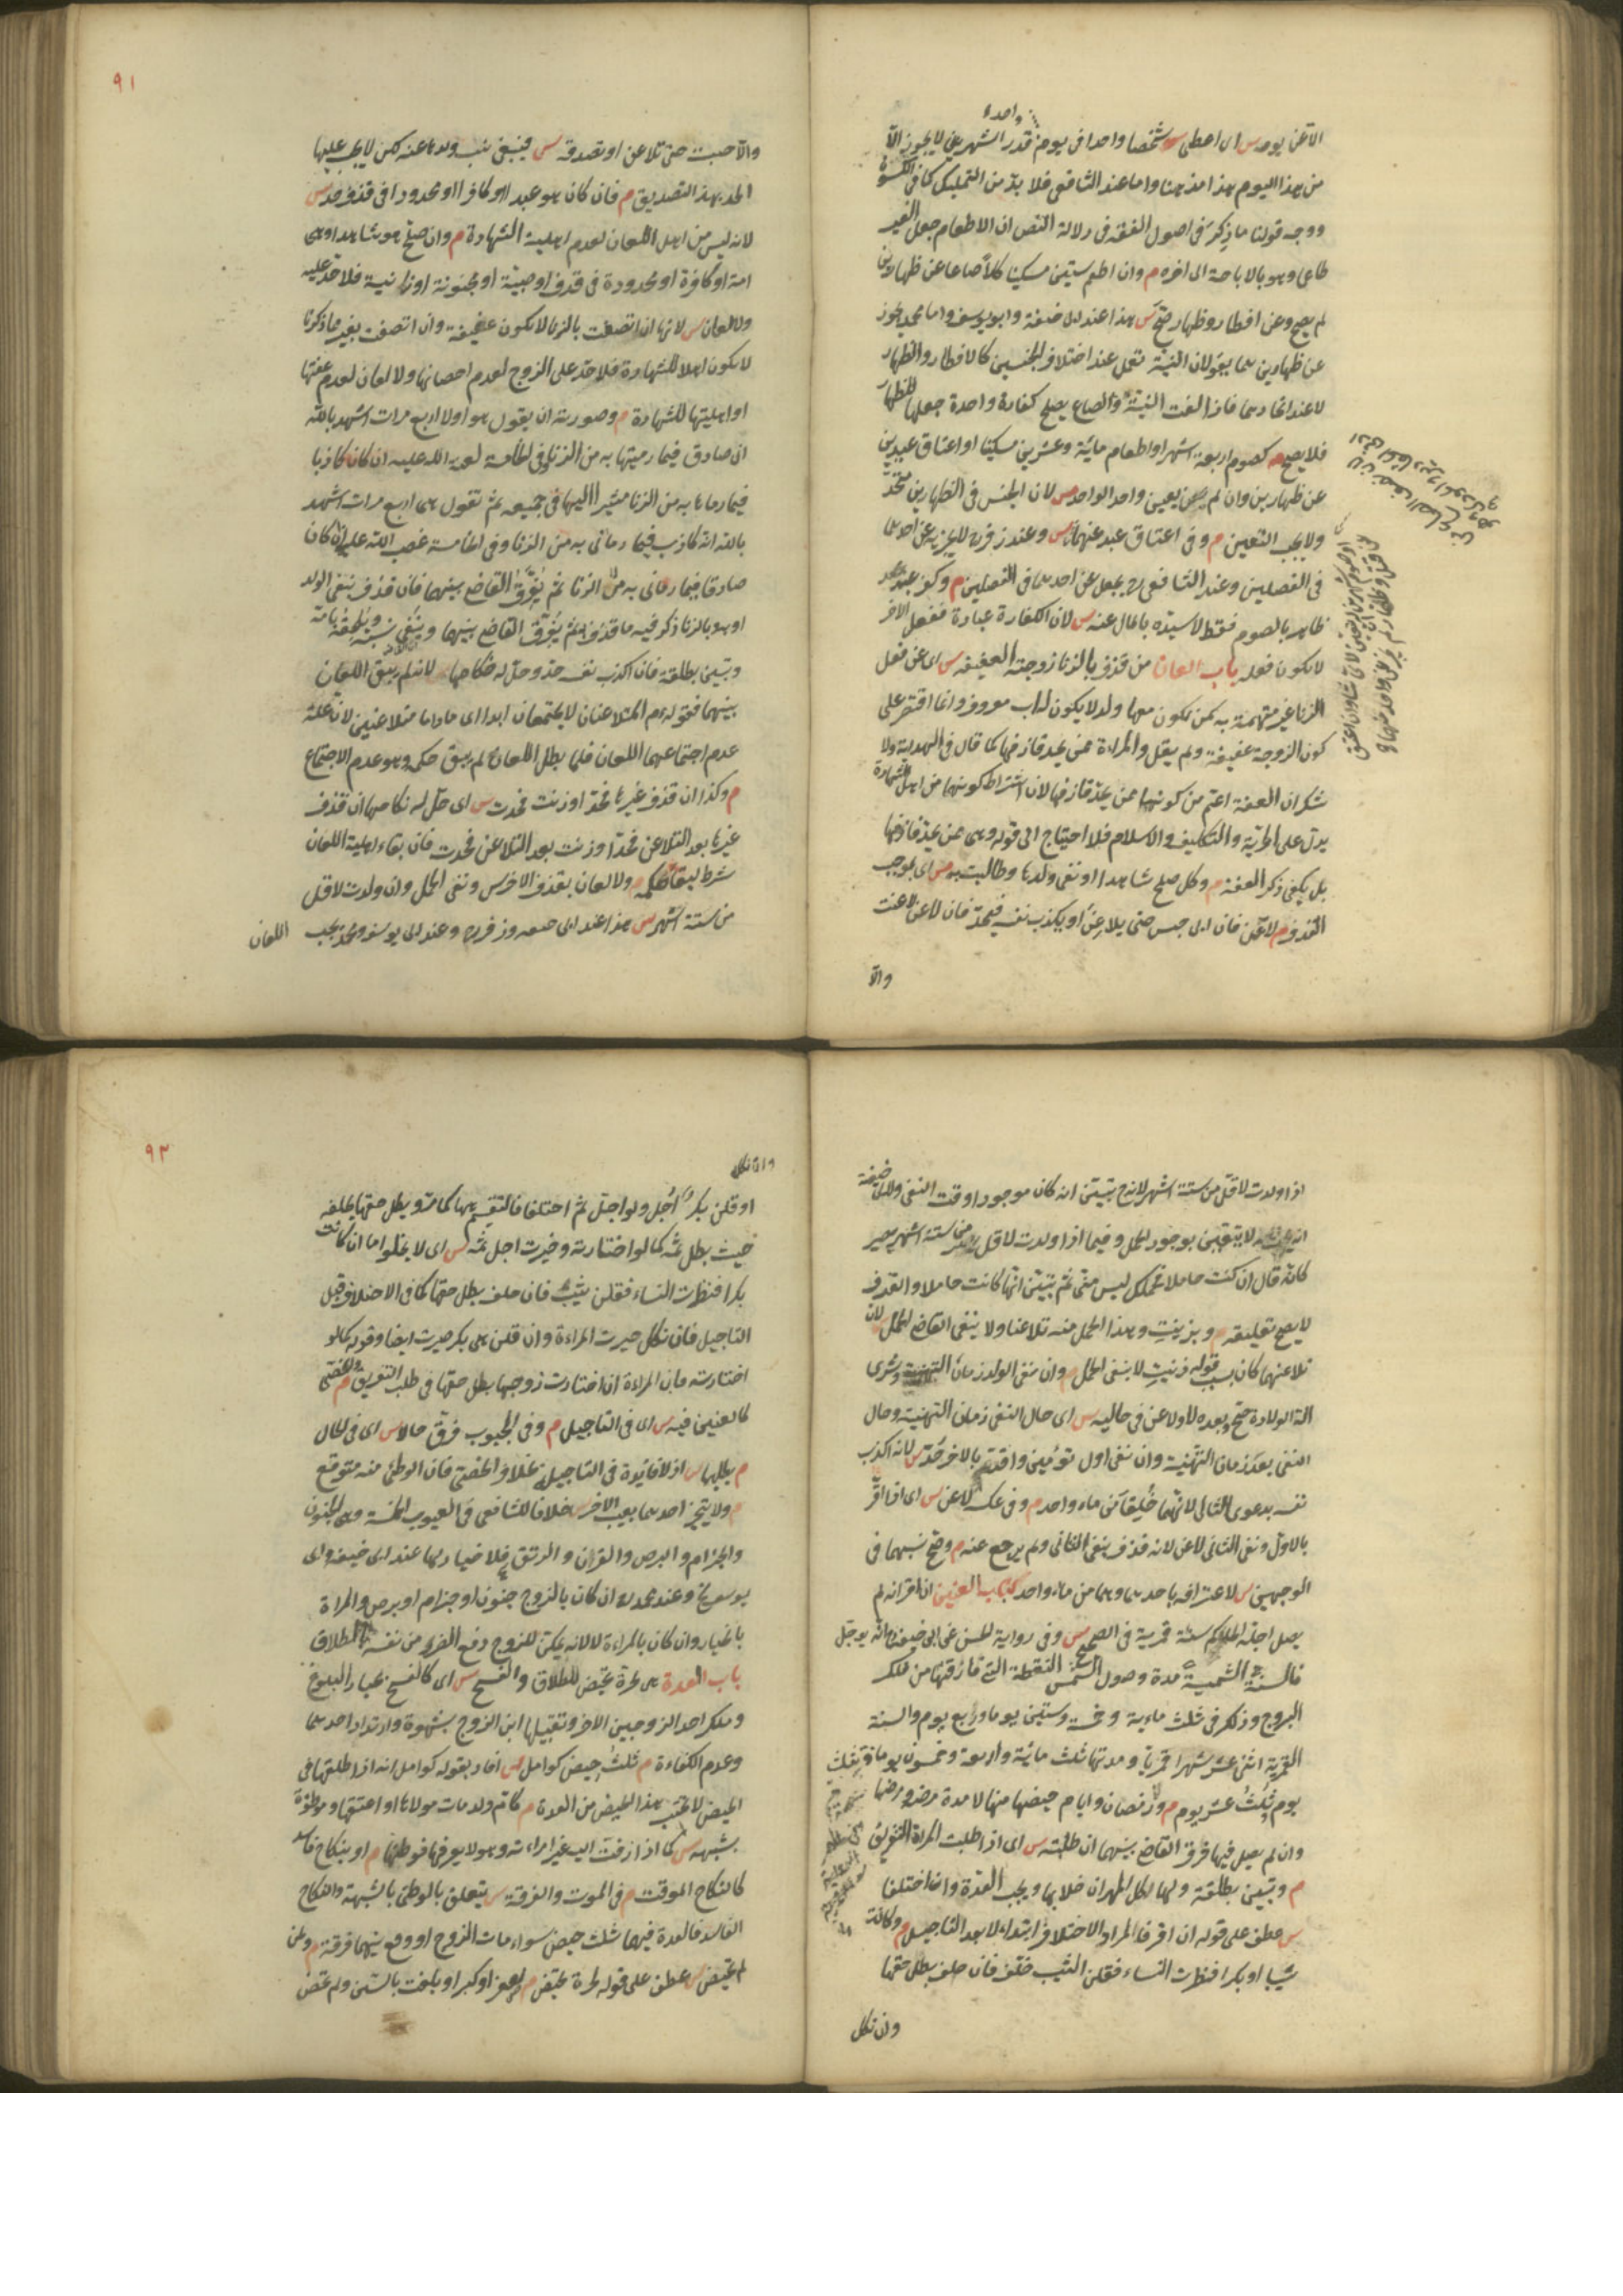 واحدة
الا عن يومه س اى اعطى شخصا واحدا فى يوم قدر الشهرين لا يجوز الا
من هذا اليوم هذا مذهبنا واما عند الشافعى فلا بد من التمليك كما فى الكسوة
ووجه قولنا ما ذكر فى اصول الفقه فى دلالة النص ان الاطعام جعل الغير
طاعما وهو بالاباحة الى اخره م وان اطعم ستين مسكينا كلا صاعا عن ظهارين
لم يصح وعن افطار وظهار صح س هذا عند ابى حنيفة وابو يوسف واما محمد يجوز
عن ظهارين هما يقولان النية تعمل عند اختلاف الجنسين كالافطار والظهار
لا عند اتحادهما فاذا لغت النية والصاع يصلح كفارة واحدة جعلها للظهار
فلا يصح م كصوم اربعة اشهر او اطعام مائة وعشرين مسكينا او اعتاق عبدين
عن ظهارين وان لم يعين واحدا لواحد س لان الجنس فى الظهارين متحد
ولا يجب التعيين م وفى اعتاق عبد عنهما س وعند زفر لا يجزيه عن احدهما
فى الفصلين وعند الشافعى رح يجعل عن احدهما فى الفصلين م وكفر عبد
ظاهر بالصوم فقط لا سيده بالمال عنه س لان الكفارة عبادة ففعل الاخر
لا يكون فعله باب اللعان من قذف بالزنا زوجته العفيفة س اى عن فعل
الزنا غير متهمة به كمن يكون معها ولد لا يكون له اب معروف وانما اقتصر على
كون الزوجة عفيفة ولم يقل والمراءة ممن يحد قاذفها كما قال فى الهداية ولا
شك ان العفة اعم من كونها ممن يحد قاذفها لان اشتراط كونها من اهل الشهادة
يدل على الحرية والتكليف والاسلام فلا احتياج الى قوله وهى ممن يحد قاذفها
بل يكفى ذكر العفة م وكل صلح شاهدا او نفى ولدها وطالبت به س اى بموجب
القذف م لاعن فان ابى حبس حتى يلاعن او يكذب نفسه فيحد فان لاعن لاعنت
والا
٩١
والا حبست حتى تلاعن او تصدقه س فينفى نسب ولدها عنه لكن لا يجب عليها
الحد بهذا التصديق م فان كان هو عبدا او كافرا او محدودا فى قذف حد س
لانه ليس من اهل اللعان لعدم اهلية الشهادة م وان صلح هو شاهدا وهى
امة او كافرة او محدودة فى قذف او صبية او مجنونة او زانية فلا حد عليه
ولا لعان س لانها ان اتصفت بالزنا لا يكون عفيفة وان اتصفت بغير ما ذكرنا
لا يكون اهلا للشهادة فلا حد على الزوج لعدم احصانها ولا لعان لعدم عفتها
او اهليتها للشهادة م وصورته ان يقول هو اولا اربع مرات اشهد بالله
انى صادق فيما رميتها به من الزنا وفى الخامسة لعنة الله عليه ان كان كاذبا
فيما رماها به من الزنا مشيرا اليها فى جميعه ثم تقول هى اربع مرات اشهد
بالله انه كاذب فيما رمانى به من الزنا وفى الخامسة غضب الله عليها ان كان
صادقا فيما رمانى به من الزنا ثم يفرق القاضى بينهما فان قذف بنفى الولد
او به وبالزنا ذكر فيه ما قذف به ثم يفرق القاضى بينهما وينفى نسبه ويلحقه بامه
وتبين بطلقة فان اكذب نفسه حد وحل له نكاحها س لانه لم يبق اللعان
بينهما فقوله عم المتلاعنان لا يجتمعان ابدا اى ماداما متلاعنين لان علة
عدم اجتماعهما اللعان فلما بطل اللعان لم يبق حكمه وهو عدم الاجتماع
م وكذا ان قذف غيرها فحد او زنت فحدت س اى حل له نكاحها ان قذف
غيرها بعد التلاعن فحد او زنت بعد التلاعن فحدت فان بقاء اهلية اللعان
شرط لبقاء حكمه م ولا لعان بقذف الاخرس ونفى الحمل وان ولدت لاقل
من ستة اشهر س هذا عند ابى حنيفة وزفر رح وعند ابى يوسف ومحمد يجب اللعان
اذا ولدت لاقل من ستة اشهر لانه ح يتبين انه كان موجودا وقت النفى ولابى حنيفة
انه لا يتيقن بوجود الحمل وفيما اذا ولدت لاقل من ستة اشهر يصير
كانه قال ان كنت حاملا فحملك ليس منى ثم يتبين انها كانت حاملا والقذف
لا يصح تعليقه م وبزنيت وهذا الحمل منه تلاعنا ولا ينفى القاضى الحمل س لان
تلاعنهما كان بسبب قوله زنيت لا بنفى الحمل م وان نفى الولد زمان التهنية وشرى
آلة الولادة صح وبعده لا ولاعن فى حاليه س اى حال النفى زمان التهنية وحال
النفى بعد زمان التهنية وان نفى اول توأمين واقر بالاخر حد س لانه اكذب
نفسه بدعوى الثانى لانهما خلقا من ماء واحد م وفى عكسه لاعن س اى اذا اقر
بالاول ونفى الثانى لاعن لانه قذف بنفى الثانى ولم يرجع عنه م وصح نسبهما فى
الوجهين س لاعترافه باحدهما وهما من ماء واحد كتاب العنين ان اقر انه لم
يصل اجله الحاكم سنة قمرية فى الصحيح س وفى رواية الحسن عن ابى حنيفة انه يوجل
فالسنة الشمسية مدة وصول الشمس الى النقطة التى فارقتها من فلك
البروج وذلك فى ثلث ماية وخمسة وستين يوما وربع يوم والسنة
القمرية اثنى عشر شهرا قمريا ومدتها ثلث مائة واربعة وخمسون يوما وثلث
يوم وثلث عشر يوم م ورمضان وايام حيضها منها لا مدة مرضه ومرضها
وان لم يصل فيها فرق القاضى بينهما ان طلبته س اى اذا طلبت المراة التفريق
م وتبين بطلقة ولها كل المهر ان خلا بها ويجب العدة وان اختلفا
س عطف على قوله ان اقر فالمراد الاختلاف ابتداء لا بعد التاجيل م وكانت
ثيبا او بكرا فنظرت النساء فقلن الثيب حلف فان حلف بطل حقها
وان نكل
٩٢
وان نكل
او قلن بكر اجل ولو اجل ثم اختلفا فالتقسيم هنا كما مر وبطل حقها بحلفه
حيث بطل ثمه كما لو اختارته وخيرت حيث اجل ثمه س اى لا يخلوا اما ان كانت
بكرا فنظرت النساء فقلن ثيب فان حلف بطل حقها كما فى الاختلاف قبل
التاجيل فان نكل خيرت المراءة وان قلن هى بكر خيرت ايضا وقوله كما لو
اختارته فان المراءة ان اختارت زوجها بطل حقها فى طلب التفريق م والخصى
كالعنين فيه س اى فى التاجيل م وفى المجبوب فرق حالا س اى فى الحال
م بطلبها س اذ لا فائدة فى التاجيل بخلاف الخصى فان الوطئ منه متوقع
م ولا يتخير احدهما بعيب الاخر س خلافا للشافعى فى العيوب الخمسة وهى الجنون
والجذام والبرص والقرن والرتق فلا خيار لهما عند ابى حنيفة وابى
يوسف رح وعند محمد رح ان كان بالزوج جنون او جذام او برص والمراة
بالخيار وان كان بالمراءة لا لانه يمكن للزوج دفع الضرر عن نفسه بالطلاق
باب العدة هى لحرة تحيض للطلاق والفسخ س اى كالفسخ بخيار البلوغ
وملك احد الزوجين الاخر وتقبيلها ابن الزوج بشهوة وارتداد احدهما
وعدم الكفاءة م ثلث حيض كوامل س افاد بقوله كوامل انه اذا طلقها فى
الحيض لا يحتسب هذا الحيض من العدة م كام ولد مات مولاها او اعتقها وموطؤة
بشبهة س كما اذا زفت اليه غير امراءته وهو لا يعرفها فوطئها م او بنكاح فاسد
كالنكاح الموقت م فى الموت والفرقة س يتعلق بالوطئ بالشبهة والنكاح
الفاسد فالعدة فيهما ثلث حيض سواء مات الزوج او وقع بينهما فرقة م ولمن
لم تحيض س عطف على قوله لحرة تحيض م لصغر او كبر او بلغت بالسن ولم تحض